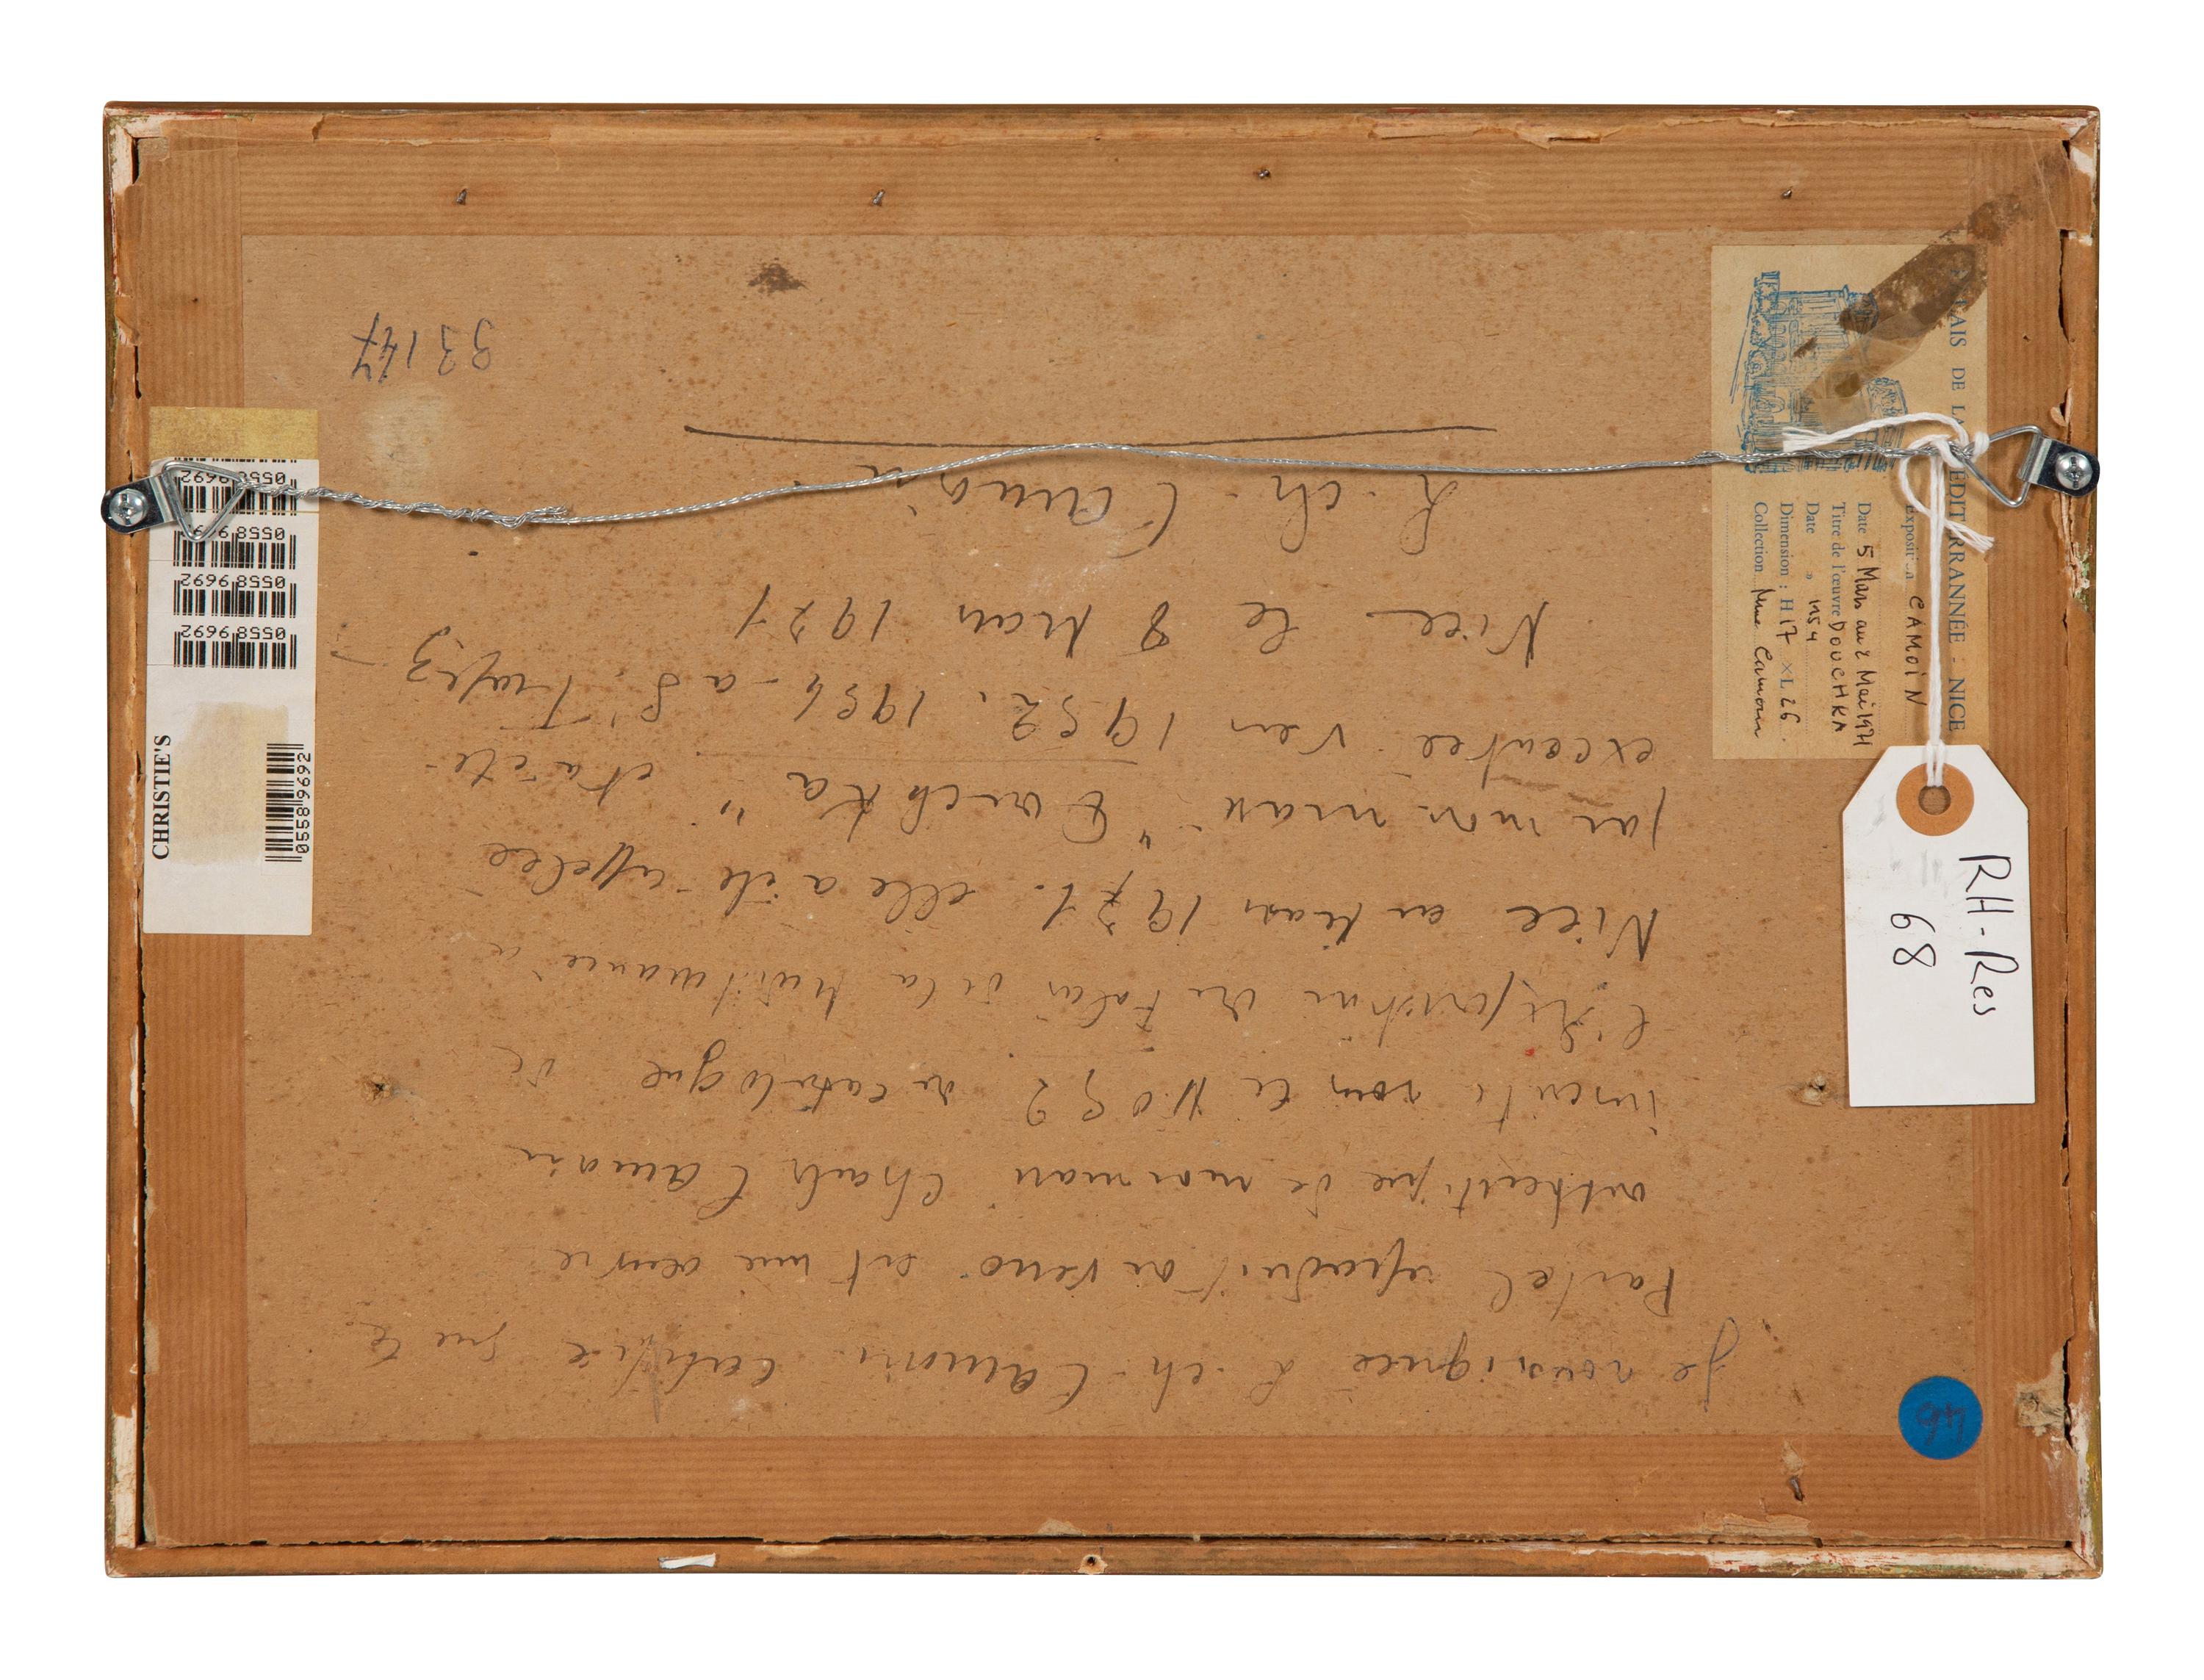 Je soussignée L. ch. Camoin certifie que le
Pastel reproduit au verso est une œuvre
authentique de mon mari Charles Camoin
inscrite sous le N° 52 du catalogue de
l'Exposition du Palais de la Méditerranée à
Nice en Mars 1971. elle a été appelée
par mon mari "Douchka" et a été
executée vers 1952. 1954 à St Tropez
Nice le 8 Mars 1971
L. ch. Camoin
33147
PALAIS DE LA MÉDITERRANNÉE : NICE
Exposition CAMOIN
Date 5 Mars au 2 Mai 1971
Titre de l'œuvre DOUCHKA
Date " 1954
Dimension : H 17 × L 26.
Collection Mme Camoin
RH-Res
68
46
CHRISTIE'S
05589692
05589692
05589692
05589692
05589692